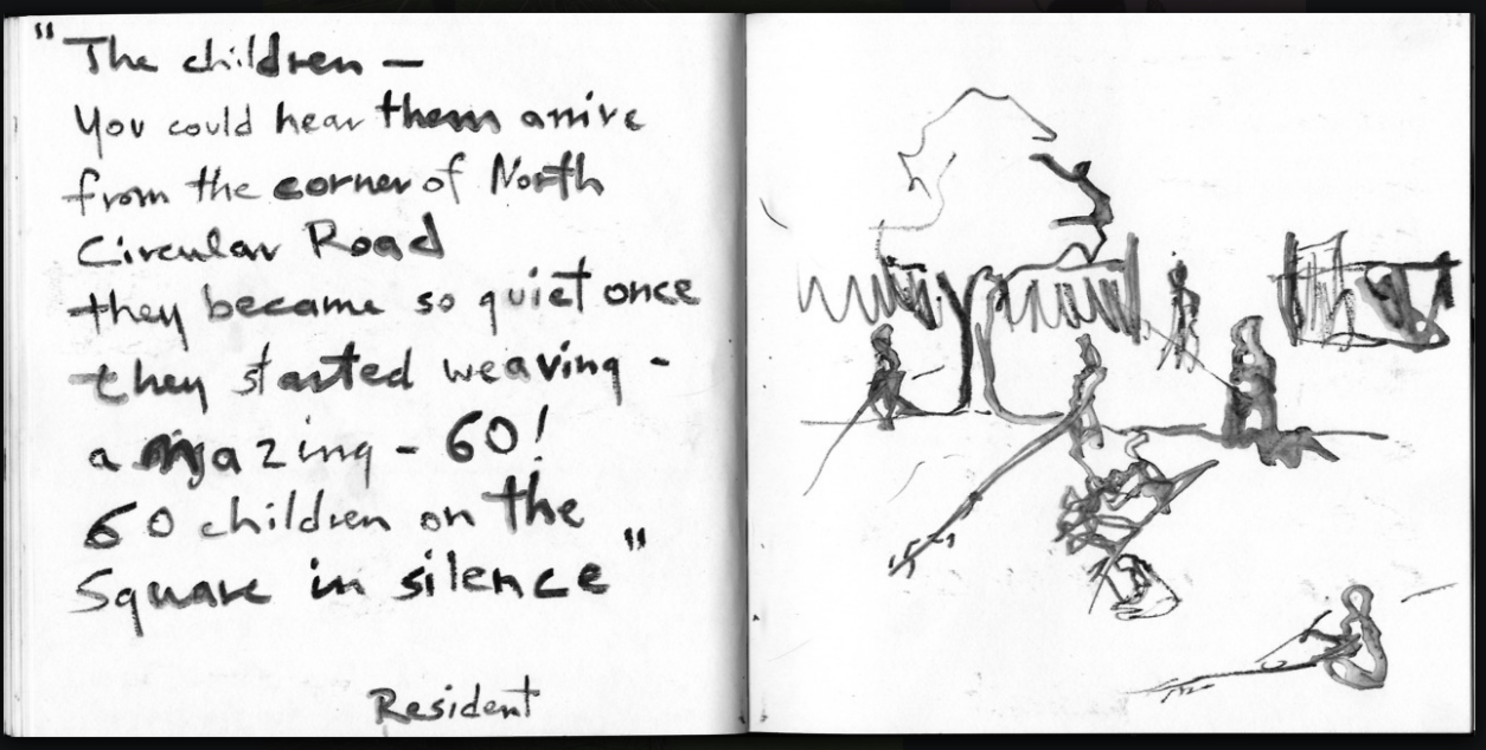 "The children —
You could hear them arrive
from the corner of North
Circular Road
they became so quiet once
they started weaving -
amazing - 60!
60 children on the
Square in silence"
Resident